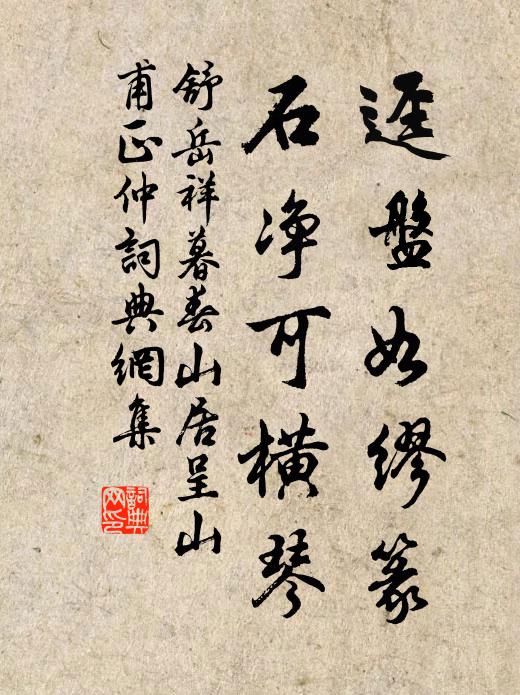 逕盤如繆篆
石净可橫琴
舒岳祥暮春山居呈山
甫正仲詞典網集
詞典
网印